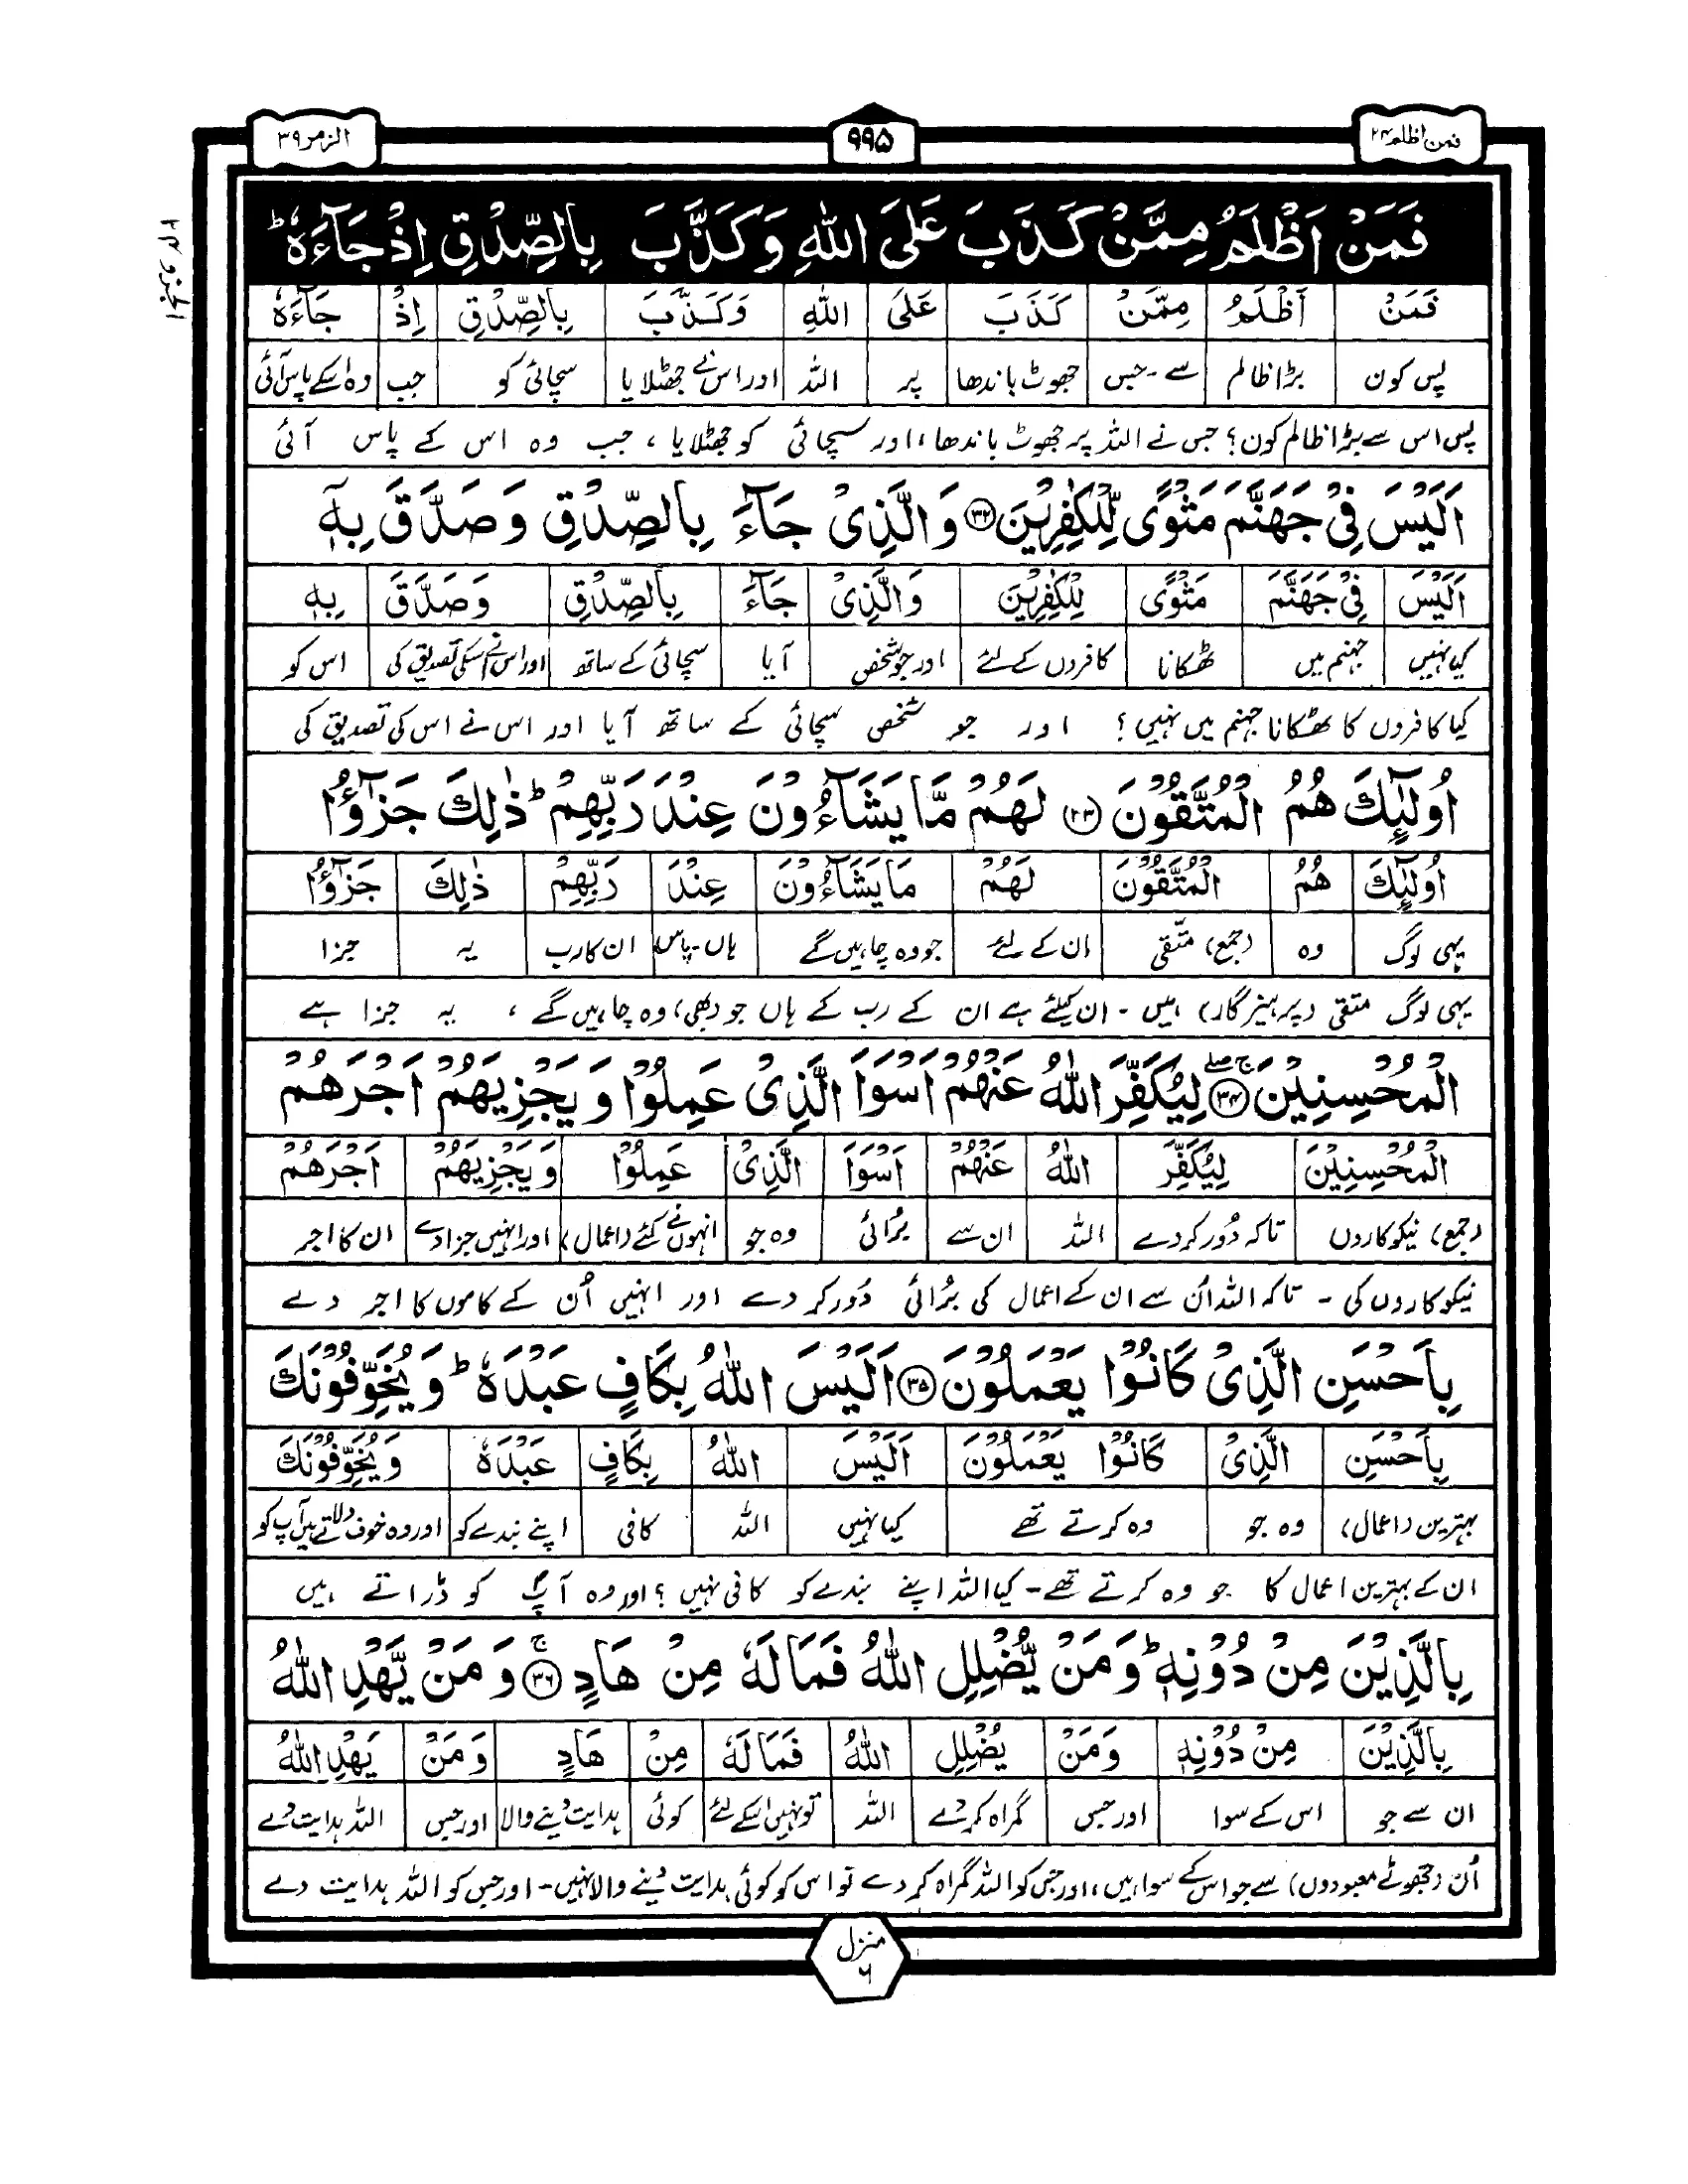 فمن اظلم ۲۴
۹۹۵
الزمر ۳۹
الجزو ۲۴
فَمَنْ اَظْلَمُ مِمَّنْ كَذَبَ عَلَى اللّٰهِ وَكَذَّبَ بِالصِّدْقِ اِذْ جَآءَهٗ ؕ
فَمَنْ اَظْلَمُ مِمَّنْ كَذَبَ عَلَى اللّٰهِ وَكَذَّبَ بِالصِّدْقِ اِذْ جَآءَهٗ
پس کون بڑا ظالم سے - جس جھوٹ باندھا پر اللہ اور اس نے جھٹلایا سچائی کو جب وہ اسکے پاس آئی
پس اس سے بڑا ظالم کون؟ جس نے اللہ پر جھوٹ باندھا، اور سچائی کو جھٹلایا ، جب وہ اس کے پاس آئی
اَلَيْسَ فِيْ جَهَنَّمَ مَثْوًى لِّلْكٰفِرِيْنَ ۳۲ وَالَّذِيْ جَآءَ بِالصِّدْقِ وَصَدَّقَ بِهٖٓ
اَلَيْسَ فِيْ جَهَنَّمَ مَثْوًى لِلْكٰفِرِيْنَ وَالَّذِيْ جَآءَ بِالصِّدْقِ وَصَدَّقَ بِهٖٓ
کیا نہیں جہنم میں ٹھکانا کافروں کے لئے اور جو شخص آیا سچائی کے ساتھ اور اس نے اسکی تصدیق کی اس کو
کیا کافروں کا ٹھکانا جہنم میں نہیں؟ اور جو شخص سچائی کے ساتھ آیا اور اس نے اس کی تصدیق کی
اُولٰٓئِكَ هُمُ الْمُتَّقُوْنَ ۳۳ لَهُمْ مَّا يَشَآءُوْنَ عِنْدَ رَبِّهِمْ ؕ ذٰلِكَ جَزٰٓؤُا
اُولٰٓئِكَ هُمُ الْمُتَّقُوْنَ لَهُمْ مَا يَشَآءُوْنَ عِنْدَ رَبِّهِمْ ذٰلِكَ جَزٰٓؤُا
یہی لوگ وہ (جمع) متقی ان کے لئے جو وہ چاہیں گے ہاں - پاس ان کا رب یہ جزا
یہی لوگ متقی (پرہیزگار) ہیں - ان کیلئے ہے ان کے رب کے ہاں جو (بھی) وہ چاہیں گے ، یہ جزا ہے
الْمُحْسِنِيْنَ ۳۴ ۚۖ لِيُكَفِّرَ اللّٰهُ عَنْهُمْ اَسْوَاَ الَّذِيْ عَمِلُوْا وَيَجْزِيَهُمْ اَجْرَهُمْ
الْمُحْسِنِيْنَ لِيُكَفِّرَ اللّٰهُ عَنْهُمْ اَسْوَاَ الَّذِيْ عَمِلُوْا وَيَجْزِيَهُمْ اَجْرَهُمْ
(جمع) نیکوکاروں تاکہ دُور کر دے اللہ ان سے بُرائی وہ جو انہوں نے کئے (اعمال) اور انہیں جزا دے ان کا اجر
نیکوکاروں کی - تاکہ اللہ اُن سے ان کے اعمال کی بُرائی دُور کر دے اور انہیں اُن کے کاموں کا اجر دے
بِاَحْسَنِ الَّذِيْ كَانُوْا يَعْمَلُوْنَ ۳۵ اَلَيْسَ اللّٰهُ بِكَافٍ عَبْدَهٗ ؕ وَيُخَوِّفُوْنَكَ
بِاَحْسَنِ الَّذِيْ كَانُوْا يَعْمَلُوْنَ اَلَيْسَ اللّٰهُ بِكَافٍ عَبْدَهٗ وَيُخَوِّفُوْنَكَ
بہترین (اعمال) وہ جو وہ کرتے تھے کیا نہیں اللہ کافی اپنے بندے کو اور وہ خوف دلاتے ہیں آپ کو
ان کے بہترین اعمال کا جو وہ کرتے تھے - کیا اللہ اپنے بندے کو کافی نہیں؟ اور وہ آپؐ کو ڈراتے ہیں
بِالَّذِيْنَ مِنْ دُوْنِهٖ ؕ وَمَنْ يُّضْلِلِ اللّٰهُ فَمَا لَهٗ مِنْ هَادٍ ۳۶ ۚ وَمَنْ يَّهْدِ اللّٰهُ
بِالَّذِيْنَ مِنْ دُوْنِهٖ وَمَنْ يُضْلِلِ اللّٰهُ فَمَا لَهٗ مِنْ هَادٍ وَمَنْ يَهْدِ اللّٰهُ
ان سے جو اس کے سوا اور جس گمراہ کر دے اللہ تو نہیں اسکے لئے کوئی ہدایت دینے والا اور جس اللہ ہدایت دے
اُن (جھوٹے معبودوں) سے جو اس کے سوا ہیں، اور جس کو اللہ گمراہ کر دے تو اس کو کوئی ہدایت دینے والا نہیں - اور جس کو اللہ ہدایت دے
منزل
۶